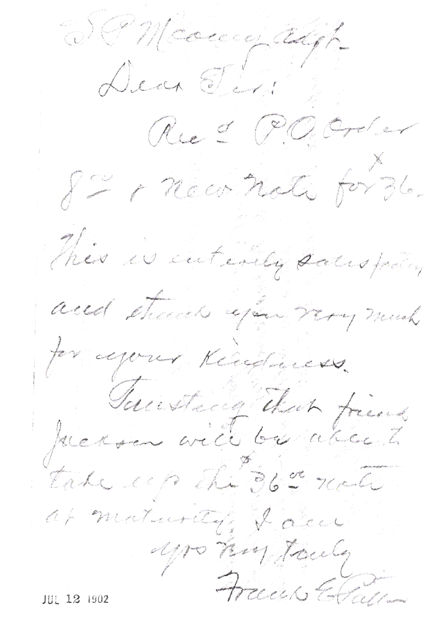 Dear Sir:
Rec'd P.O. Order
8 00 & New Note for $36.
This is entirely satisfactory
and thank you very much
for your kindness.
Trusting that friend
Jackson will be able to
take up the $36 00 note
at maturity, I am
yrs very truly
Frank E.
JUL 12 1902